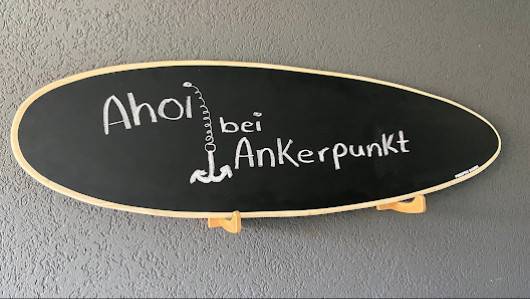 Ahoi
bei
Ankerpunkt